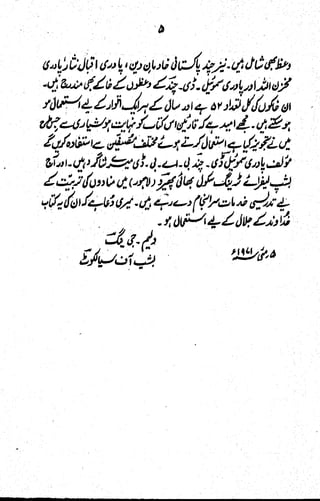 ۵
وعظ بھی شامل ہیں۔ نیز چند پاکستانی خادمانِ دین، پادری اقبال نثار پادری
مخزن اللہ اور پادری سموئیل۔ ڈی۔ چند کے وعظوں کے خاکے بھی مندرج ہیں۔
ان خاکوں کی کل تعداد ۵۲ ہے اور سال کے ہر ایک اتوار کے لیے استعمال ہو
سکتے ہیں۔ مجھے امید ہے کہ قارئین اس کتاب کو نہایت ہوشیاری سے جس طرح
میں نے تجویز کیا ہے استعمال کرتے ہوئے مختلف مصنفین سے استفادہ کریں گے
مؤلف پادری سموئیل ڈی۔ چند بی۔ اے۔ بی۔ ڈی میرے شاگرد ہیں۔ اور آج
بشپ لیفرائے ٹریننگ سکول بھائی پھیرو (لاہور) میں منادوں کی تربیت کے
لیے تدریسی خدمات سرانجام دے رہے ہیں۔ میری دعا ہے کہ ان کی یہ کتاب
خداوند کے جلال کے لیے استعمال ہو۔
ولیم۔ جی ینگ
۵ مئی ۱۹۷۱ء
بشپ آف سیالکوٹ